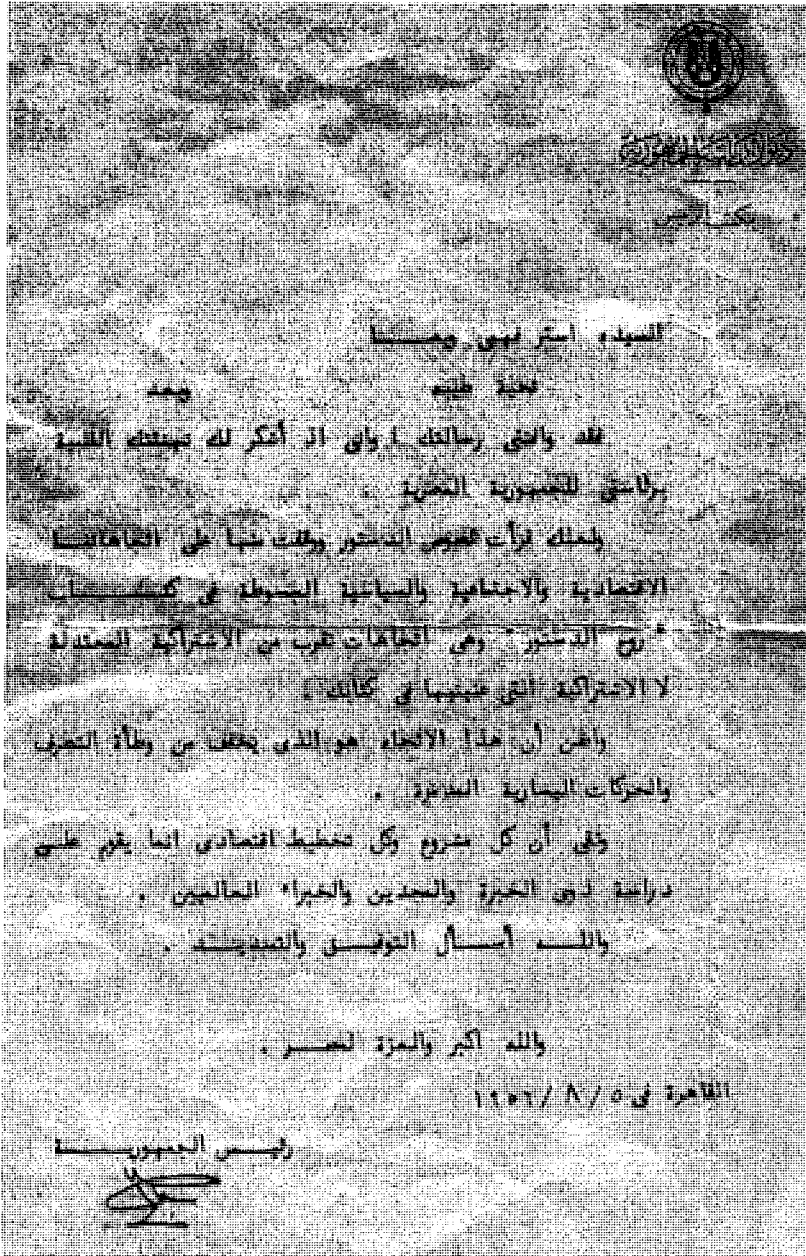 رئاسة الجمهورية
مكتب الرئيس
السيدة استر فهمى ويصــــا
تحية طيبة وبعد
فقد وافتنى رسالتك ، وانى اذ أشكر لك تهنئتك القلبية
برئاستى للجمهورية المصرية .
ولعلك قرأت نصوص الدستور ووقفت منها على اتجاهاتنــا
الاقتصادية والاجتماعية والسياسية المبسوطة فى كتــــاب
" روح الدستور " وهى اتجاهات تقرب من الاشتراكية المعتدلة
لا الاشتراكية التى عنيتيها فى كتابك .
واظن أن هذا الاتجاه هو الذى يخفف من وطأة التطرف
والحركات اليسارية .
وثقى أن كل مشروع وكل تخطيط اقتصادى انما يقوم علــى
دراسة ذوى الخبرة والمجدين والخبراء العالميين .
واللــه أســأل التوفيــق والتسديــد .
والله اكبر والعزة لمصــر .
القاهرة فى ٥ / ٨ / ١٩٥٦
رئيــس الجمهوريــــة